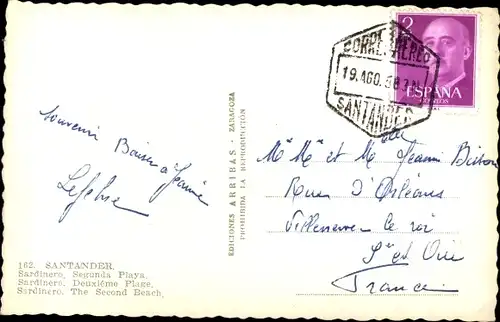 Souvenir Baiser à Jeannine
Lefebvre
162. SANTANDER.
Sardinero, Segunda Playa.
Sardinero. Deuxiéme Plage,
Sardinero. The Second Beach,
EDICIONES ARRIBAS - ZARAGOZA
PROHIBIDA LA REPRODUCCIÓN
CORREO AEREO
19.AGO.58
SANTANDER
2
ESPAÑA
CORREOS
Mr Me et Melle Jeannin
Rue D'Orléans
Villeneuve le roi
St et Oise
France